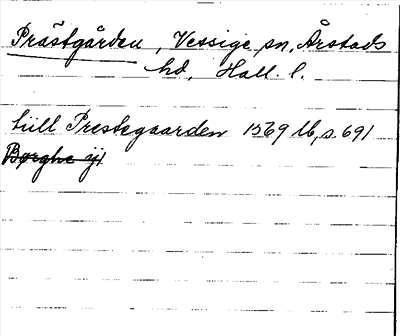 Prästgården, Vessige sn, Årstads
hd, Hall. l.
till Prestegaarden 1569 lb, s. 691
Børghe ÿ